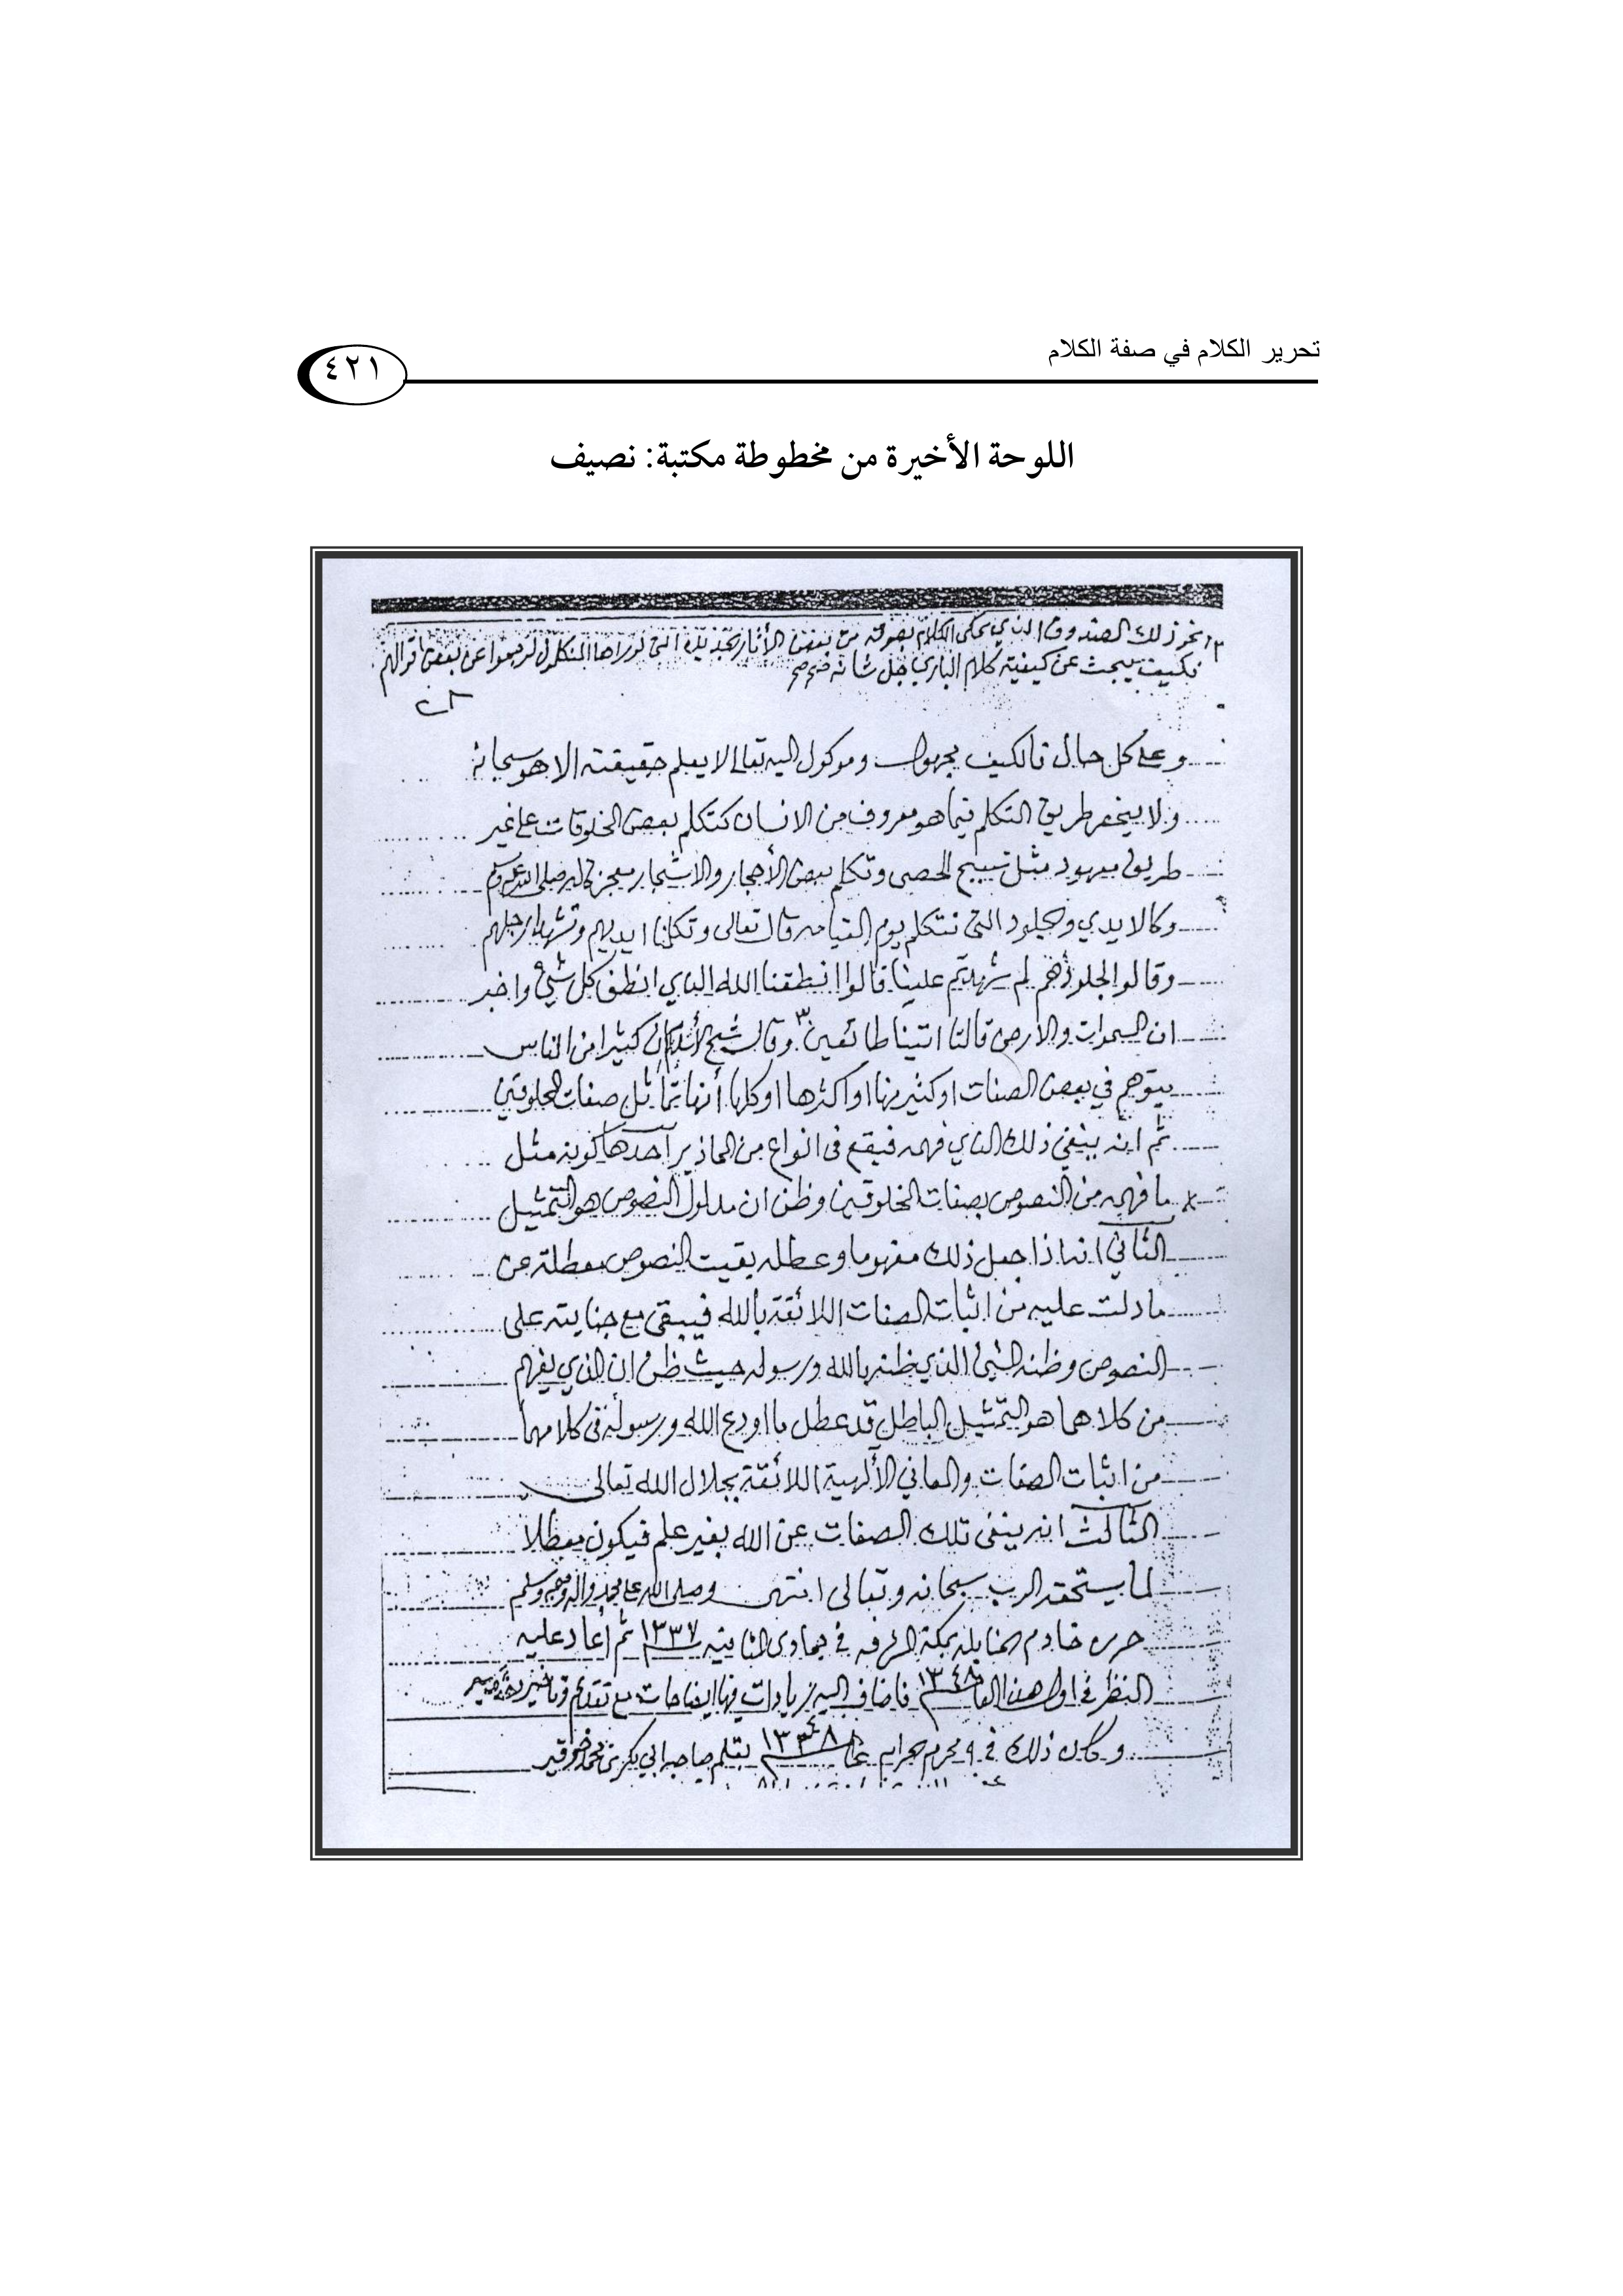 تحرير الكلام في صفة الكلام
٤٢١
اللوحة الأخيرة من مخطوطة مكتبة: نصيف
ذلك الصندوق الذي يحكى الكلام بصوته من بعض الأثار التى لو راها المتكلمون لرجعوا عن بعض اقوالهم
فكيف يبحث عن كيفية كلام الباري جل شانه
وعلى كل حال فالكيف مجهول وموكول اليه تعالى لا يعلم حقيقته الا هو سبحانه
ولا ينحصر طريق التكلم فيما هو معروف من الانسان كتكلم بعض المخلوقات على غير
طريق معهود مثل تسبيح الحصى وتكلم بعض الأحجار والاشجار معجزة له صلى الله عليه وسلم
وكالايدي والجلود التى تتكلم يوم القيامه قال تعالى وتكلمنا ايديهم وتشهد ارجلهم
وقالوا لجلودهم لم شهدتم علينا قالوا انطقنا الله الذي انطق كل شيء واخبر
ان السموات والأرض قالتا اتينا طائعين ٣ وقال شيخ الأسلام ان كثيرا من الناس
يتوهم في بعض الصفات او كثير منها او اكثرها او كلها أنها تماثل صفات المخلوقين
ثم انه ينفي ذلك الذي فهمه فيقع فى انواع من المحاذير أحدها كونه مثل
ما فهمه من النصوص بصفات المخلوقين وظن ان مدلول النصوص هو التمثيل
الثاني انه اذا جعل ذلك مفهوما وعطله بقيت النصوص معطلة عن
ما دلت عليه من اثبات الصفات اللائقة بالله فيبقى مع جنايته على
النصوص وظنه السيئ الذي ظنه بالله ورسوله حيث ظن ان الذي يفهم
من كلاهما هو التمثيل الباطل قد عطل ما اودع الله ورسوله فى كلامهما
من اثبات الصفات والمعاني الألهية اللائقة بجلال الله تعالى
الثالث انه ينفى تلك الصفات عن الله بغير علم فيكون معطلا
لما يستحقه الرب سبحانه وتعالى انتهى وصلى الله على محمد واله وصحبه وسلم
حرره خادم الحنابلة بمكة المشرفه في جمادى الثانيه سنة ١٣٣٧ ثم أعاد عليه
النظر في اول هذا العام ١٣٤٨ فاضاف اليه زيادات فيها ايضاحات مع تقديم وتاخير
وكان ذلك في ٩ محرم الحرام عام ١٣٤٨ بقلم صاحبه ابي بكر بن محمد خوقير